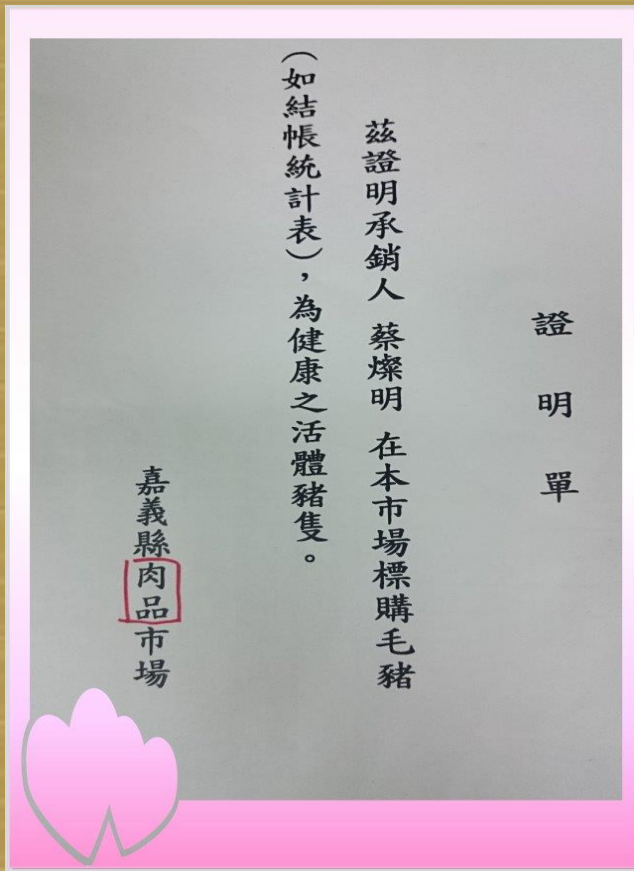 證明單
茲證明承銷人 蔡燦明 在本市場標購毛豬
（如結帳統計表），為健康之活體豬隻。
嘉義縣肉品市場